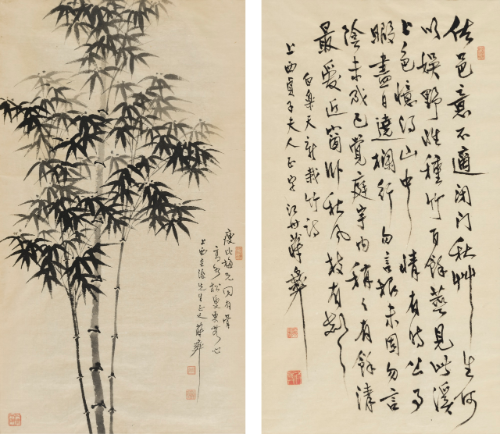 瘦比梅兄同有骨
佐邑意不適閉門秋草生何
以娛野性種竹百餘莖見此溪
上色憶得山中情有時公事
暇盡日遶欄行勿言根未固勿言
陰未成已覺庭宇內稍稍有餘清
最愛近窗臥秋風枝有聲
白樂天新栽竹詩
上西貞子夫人正